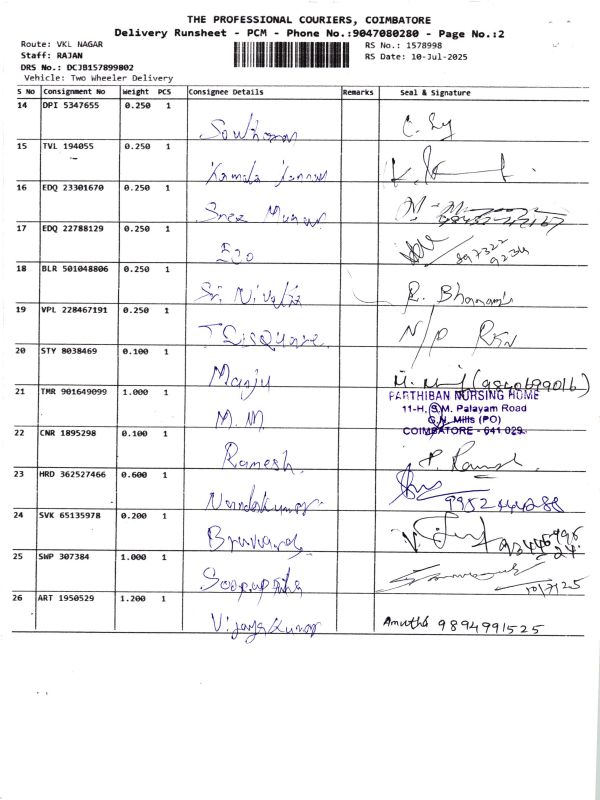 THE PROFESSIONAL COURIERS, COIMBATORE
Delivery Runsheet - PCM - Phone No.:9047080280 - Page No.:2
Route: VKL NAGAR
RS No.: 1578998
Staff: RAJAN
RS Date: 10-Jul-2025
DRS No.: DCJB157899802
Vehicle: Two Wheeler Delivery
S No Consignment No Weight PCS Consignee Details Remarks Seal & Signature
14 DPI 5347655 0.250 1
15 TVL 194055 0.250 1
Kamala Kannan
16 EDQ 23301670 0.250 1
Sree Murugan
17 EDQ 22788129 0.250 1
897322
9234
18 BLR 501048806 0.250 1
Sri Nivalia R. Bhavani
19 VPL 228467191 0.250 1
TSisquare N/P RSN
20 STY 8038469 0.100 1
Manju (9840699016)
21 TMR 901649099 1.000 1 PARTHIBAN NURSING HOME
11-H, S.M. Palayam Road
G.N. Mills (PO)
M.M COIMBATORE - 641 029.
22 CNR 1895298 0.100 1
Ramesh
23 HRD 362527466 0.600 1
Nandakumar 9952444288
24 SVK 65135978 0.200 1
25 SWP 307384 1.000 1
10/7/25
26 ART 1950529 1.200 1
Vijayakumar Amutha 9894991525